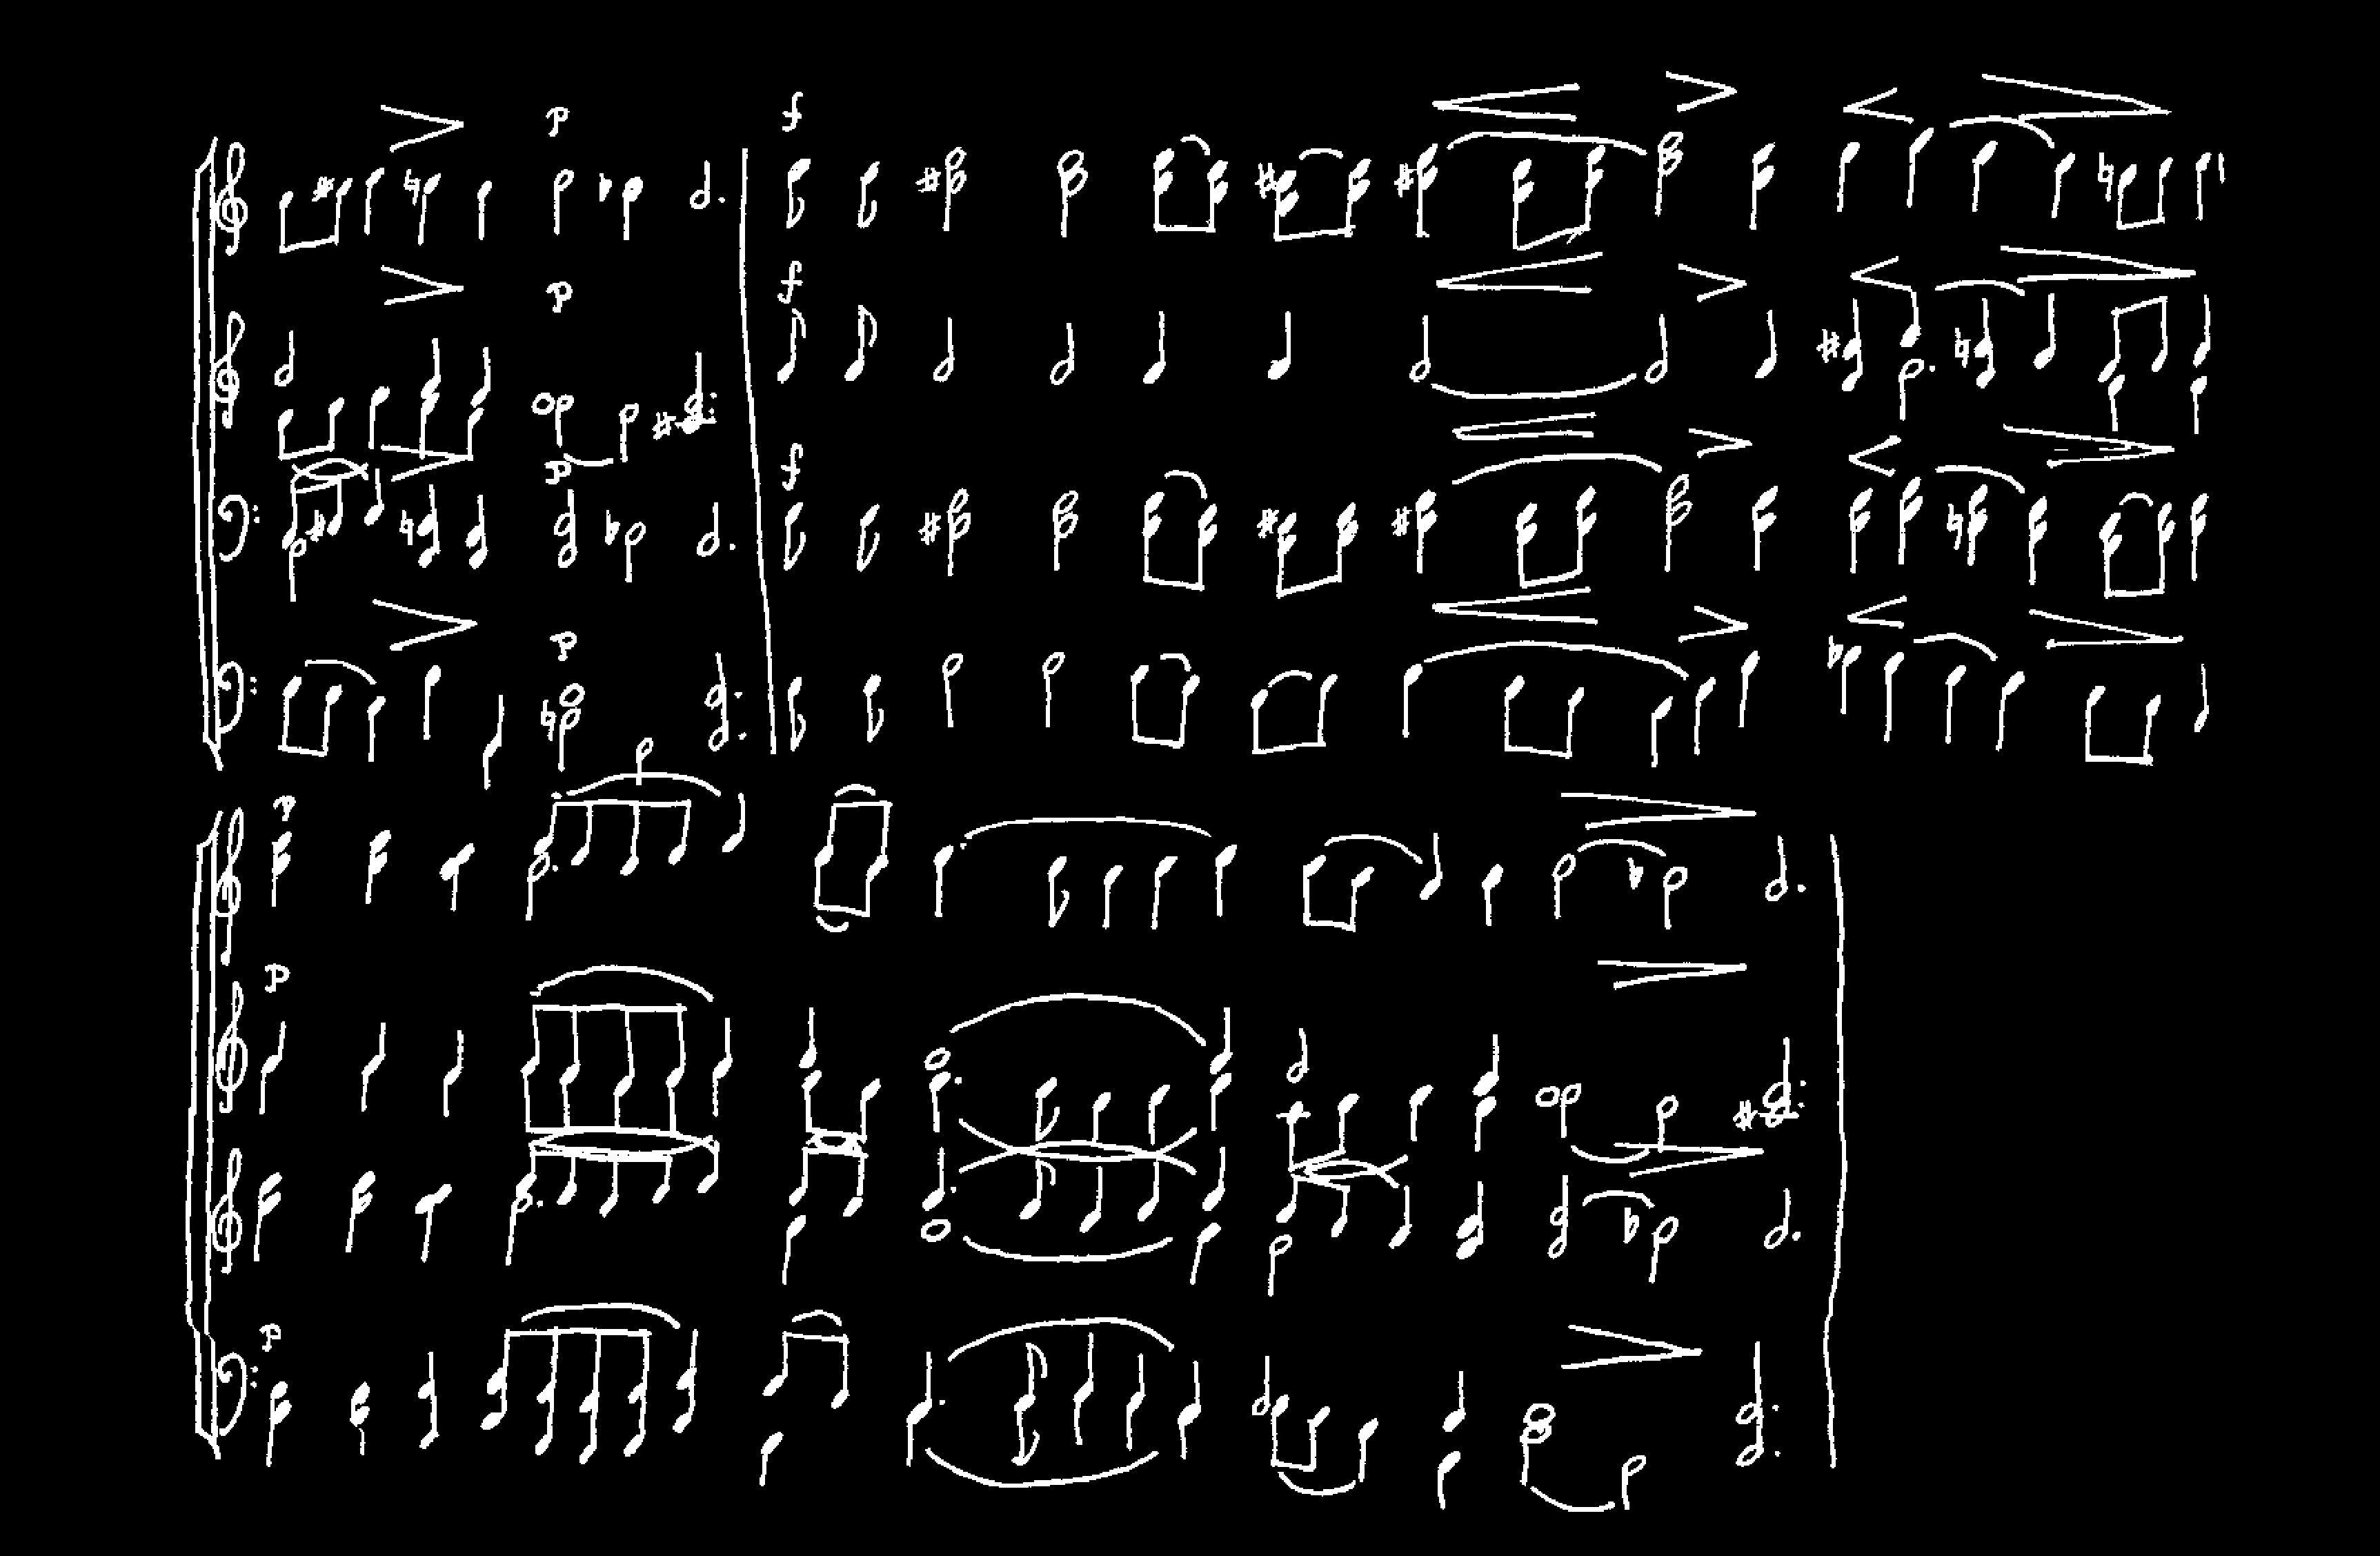 p f
p f
p f
p
p
p
p